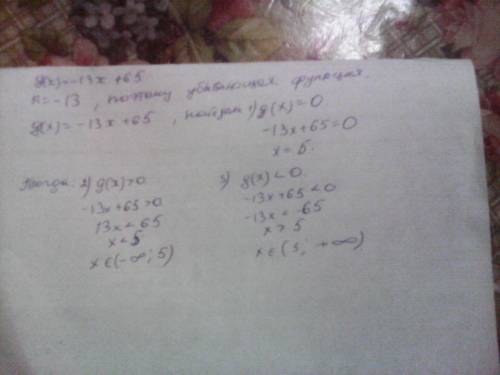 g(x)=-13x+65
k=-13, поэтому убывающая функция.
g(x)=-13x+65, найдем 1) g(x)=0
-13x+65=0
x=5.
Тогда: 2) g(x)>0
-13x+65>0
13x<65
x<5
x∈(-∞; 5)
3) g(x)<0.
-13x+65<0
-13x<-65
x>5
x∈(5; +∞)